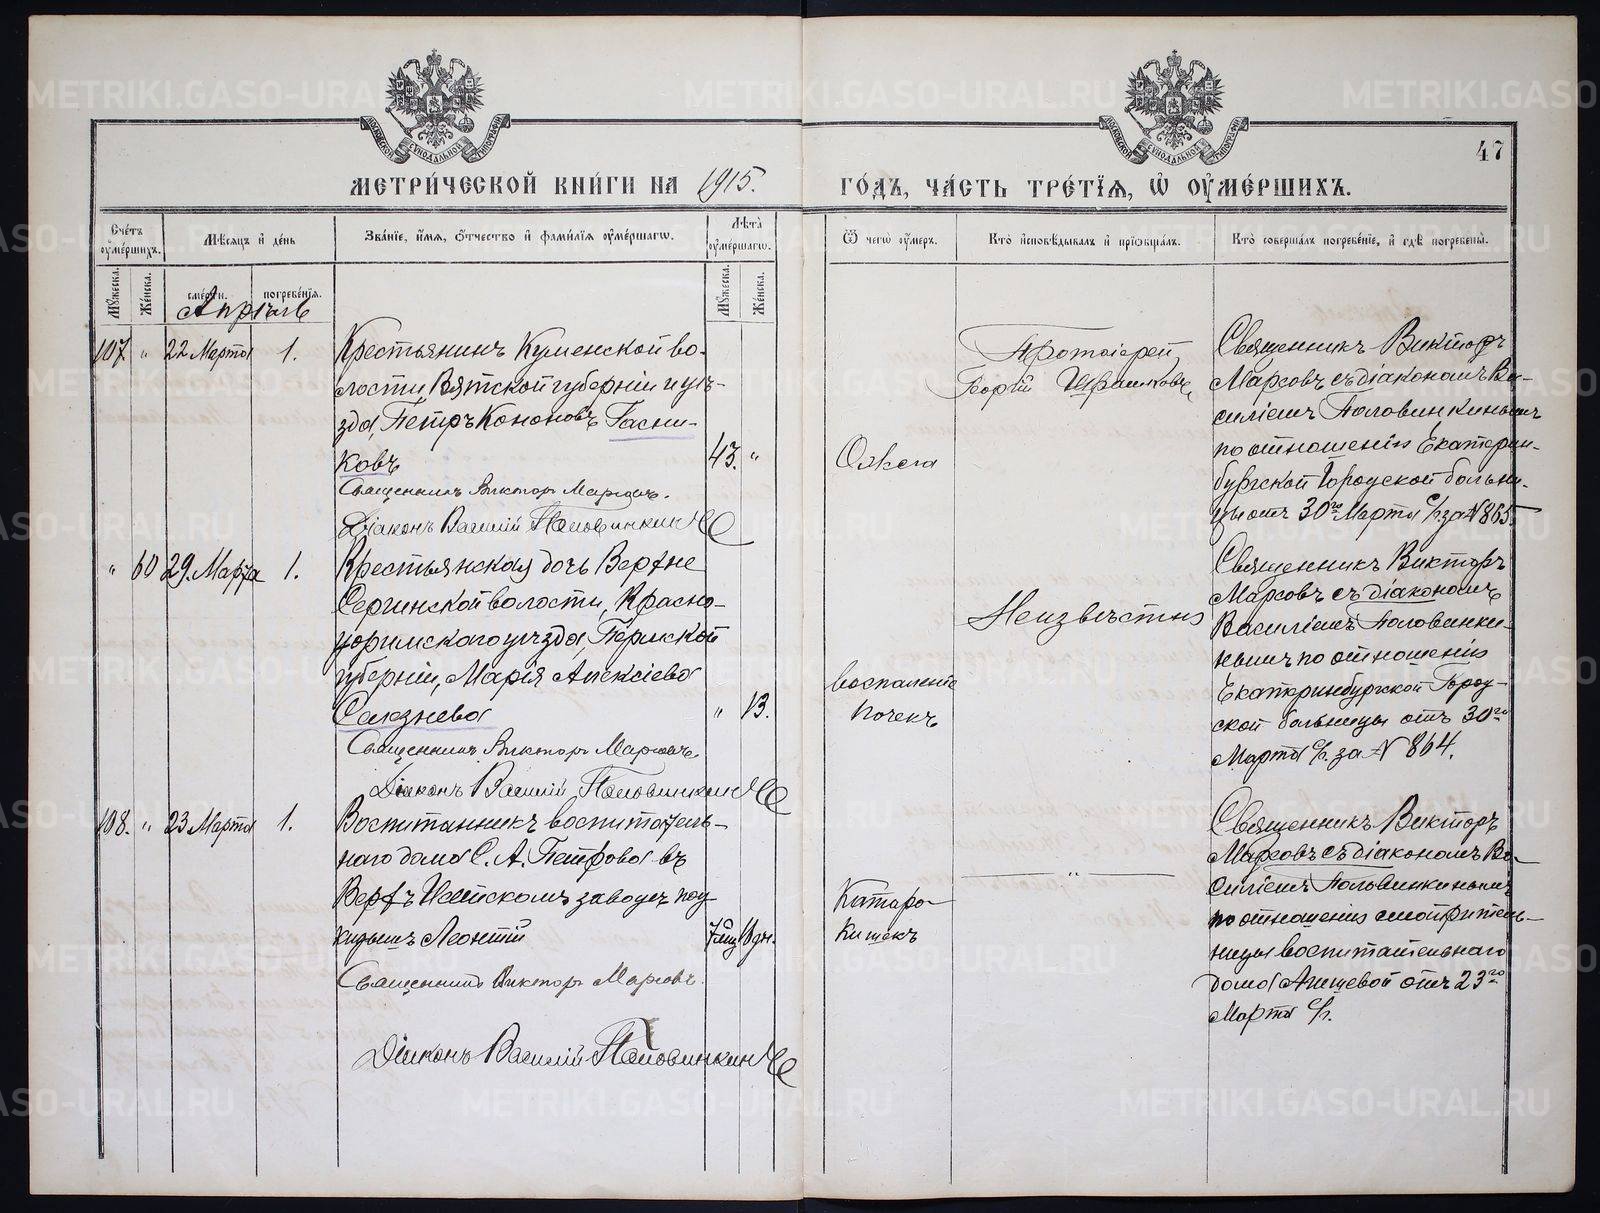 47
МЕТРИ́ЧЕСКОЙ КНИ́ГИ НА 1915.
ГО́ДЪ, ЧА́СТЬ ТРЕ́ТЇѦ, Ѡ҆ ОУ҆МЕ́РШИХЪ.
Сче́тъ оу҆ме́ршихъ.
Мѣ́сѧцъ и҆ де́нь
Зва́нїе, и҆́мѧ, ѻ҆́тчество и҆ фами́лїѧ оу҆ме́ршагѡ.
Лѣ́та оу҆ме́ршагѡ.
Ѿ чегѡ̀ оу҆́меръ.
Кто̀ и҆сповѣ́дывалъ и҆ прїѻбща́лъ.
Кто̀ соверша́лъ погребе́нїе, и҆ гдѣ̀ погребены̀.
Мꙋ́жеска.
Же́нска.
сме́рти.
погребе́нїѧ.
Мꙋ́жеска.
Же́нска.
Апрѣль
107. " 22 Марта 1.
Крестьянинъ Куменской во-
лости, Вятской губерніи и уѣ-
зда, Петръ Кононовъ Гасни-
ковъ
43. "
Священникъ Викторъ Марсовъ.
Діаконъ Василій Половинкинъ
Ожога
Протоіерей
Священникъ Викторъ
Марсовъ съ діакономъ Ва-
силіемъ Половинкинымъ
по отношенію Екатерин-
бургской Городской больни-
цы отъ 30го Марта с/г. за № 865.
" 60 29. Марта 1.
Крестьянская дочь Верхне
Сергинской волости, Красно-
уфимскаго уѣзда, Пермской
губерніи, Марія Алексіева
Селезнева
" 13.
Священникъ Викторъ Марсовъ
Діаконъ Василій Половинкинъ
воспаленіе
почекъ
Неизвѣстно
Священникъ Викторъ
Марсовъ съ діакономъ
Василіемъ Половинки-
нымъ по отношенію
Екатеринбургской Город-
ской больницы отъ 30го
Марта с/г. за № 864.
108. " 23 Марта 1.
Воспитанникъ воспитатель-
наго дома С. А. Петрова въ
Верхъ Исетскомъ заводѣ под-
кидышъ Леонтій
7 мц. 18 дн.
Священникъ Викторъ Марсовъ.
Діаконъ Василій Половинкинъ
Катаръ
Кишекъ
"
Священникъ Викторъ
Марсовъ съ діакономъ Ва-
силіемъ Половинкинымъ
по отношенію смотритель-
ницы воспитательнаго
дома отъ 23го
Марта с/г.